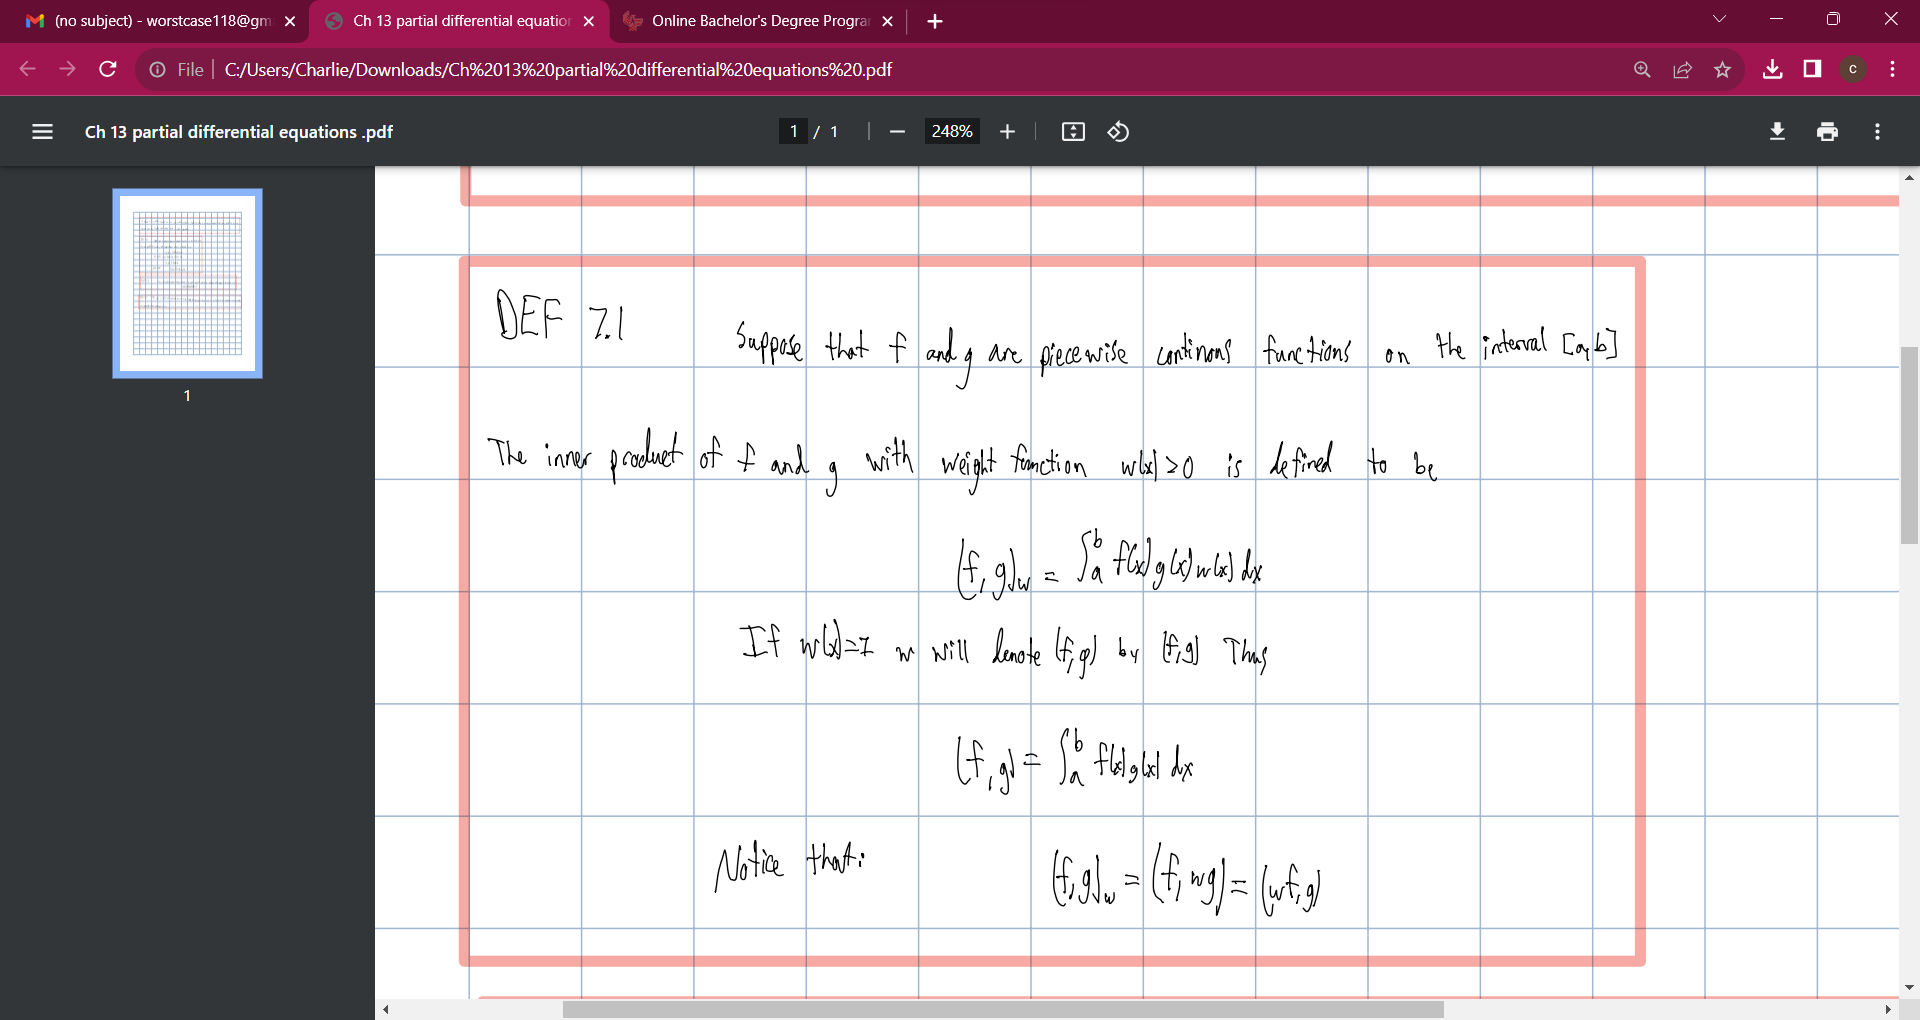 (no subject) - worstcase118@gm
Ch 13 partial differential equation
Online Bachelor's Degree Progra
File
C:/Users/Charlie/Downloads/Ch%2013%20partial%20differential%20equations%20.pdf
c
Ch 13 partial differential equations .pdf
1 / 1
248%
1
DEF 7.1
Suppose that f and g are piecewise continous functions on the interval [a,b]
The inner product of f and g with weight function w(x)>0 is defined to be
(f,g)w = ∫ₐᵇ f(x)g(x)w(x)dx
If w(x)=1 w will denote (f,g) by (f,g) Thus
(f,g) = ∫ₐᵇ f(x)g(x) dx
Notice that: (f,g)w = (f,wg) = (wf,g)